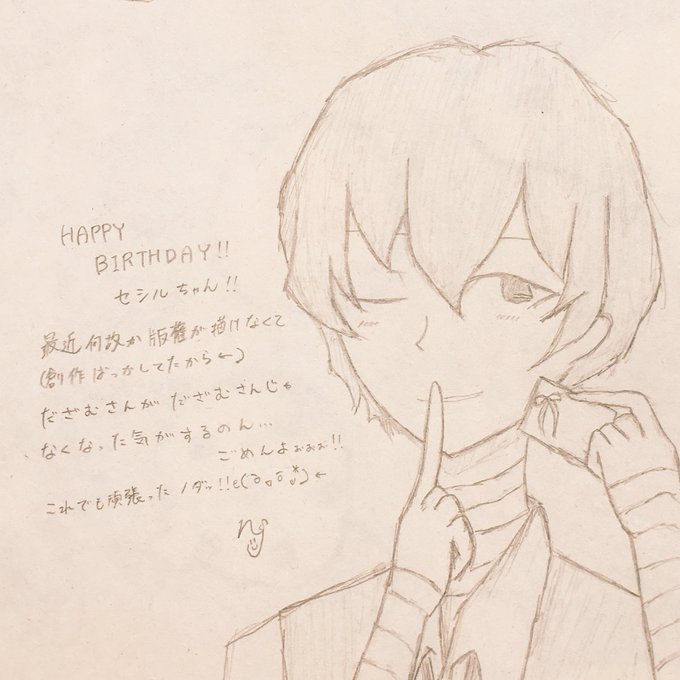 HAPPY
BIRTHDAY!!
セシルちゃん!!
最近何故か版権が描けなくて
(創作ばっかしてたから←)
だざむさんがだざむさんじゃ
なくなった気がするのん…
ごめんよぉぉぉ!!
これでも頑張ったノダッ!!